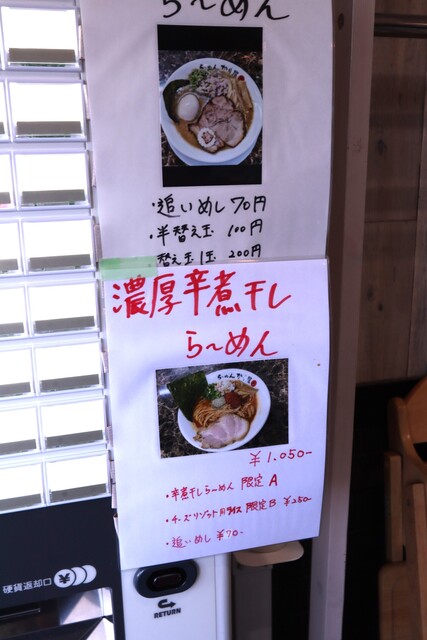 ら〜めん
・追いめし 70円
・半替え玉 100円
替え玉1玉 200円
濃厚辛煮干し
ら〜めん
¥1.050-
・辛煮干しら〜めん 限定A
・チーズリゾット用ライス 限定B ¥250-
・追いめし ¥70-
硬貨返却口
RETURN